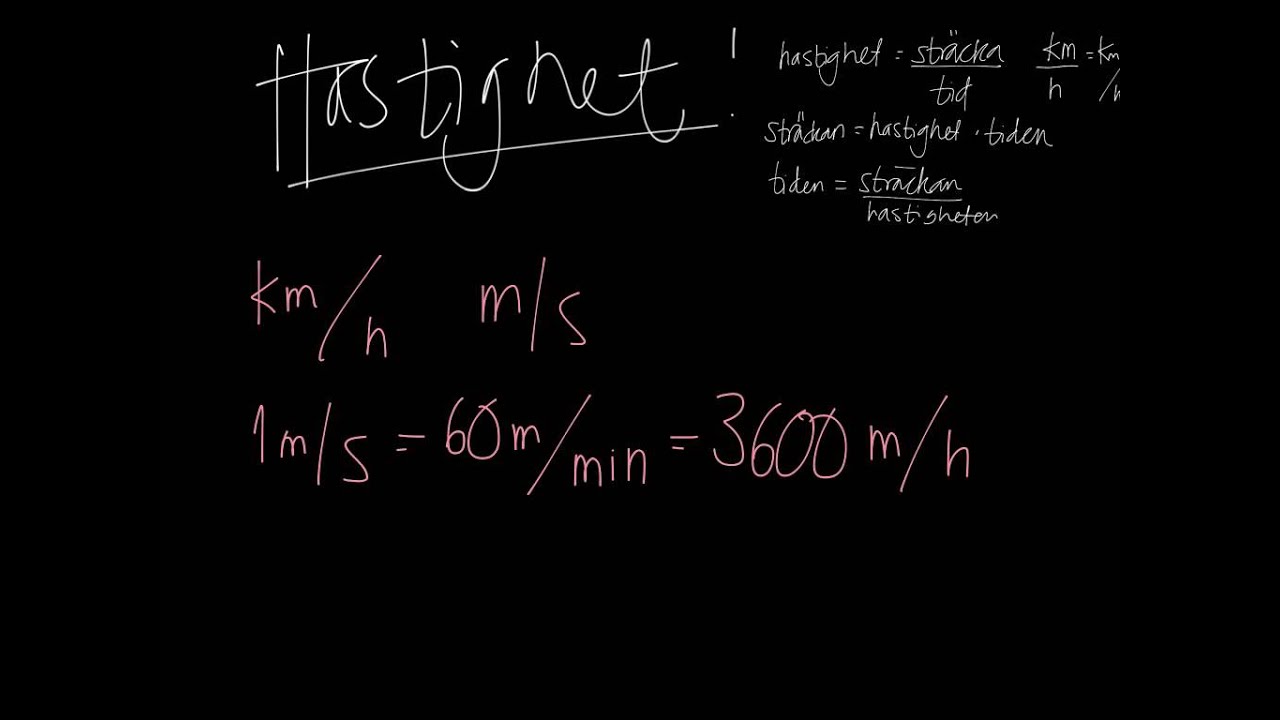 Hastighet!
hastighet = sträcka / tid km / h = km/h
sträckan = hastighet · tiden
tiden = sträckan / hastigheten
km/h m/s
1 m/s = 60 m/min = 3600 m/h